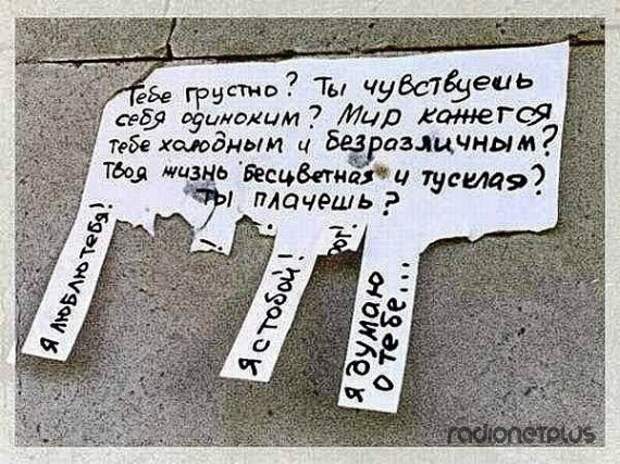 Тебе грустно? Ты чувствуешь
себя одиноким? Мир кажется
тебе холодным и безразличным?
Твоя жизнь бесцветная и тусклая?
Ты плачешь?
Я люблю тебя!
!
Я с тобой!
рог!
Я думаю
о тебе...
radionetplus